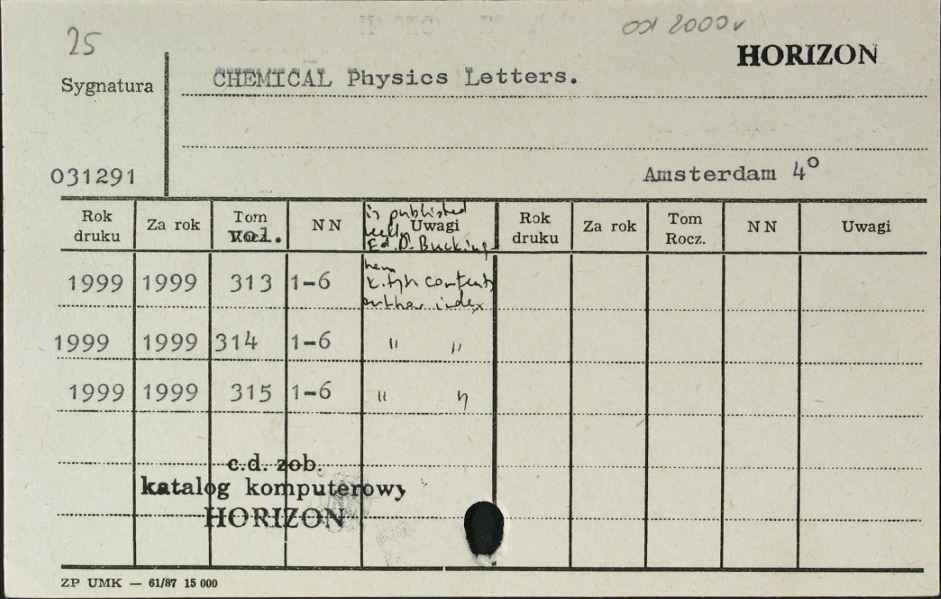 25
od 2000 r
HORIZON
Sygnatura
CHEMICAL Physics Letters.
031291
Amsterdam 4°
Rok druku Za rok Tom Vol. NN Uwagi Rok druku Za rok Tom Rocz. NN Uwagi
is published
Ed. D. Bucking-
ham
contents
author index
1999 1999 313 1-6
1999 1999 314 1-6 " "
1999 1999 315 1-6 " "
c.d. zob.
katalog komputerowy
HORIZON
ZP UMK — 61/87 15 000